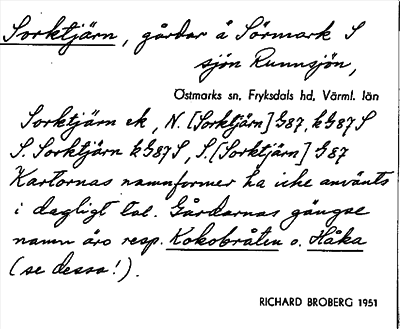 Sorktjärn, gårdar å Sörmark S
sjön Runnsjön,
Östmarks sn, Fryksdals hd, Värml. län
Sorktjärn ek, N. [Sorktjärn] G87, kG87S
S. Sorktjärn kG87S, S. [Sorktjärn] G87
Kartornas namnformer ha icke använts
i dagligt tal. Gårdarnas gängse
namn äro resp. Kokobråten o. Håka
(se dessa!).
RICHARD BROBERG 1951